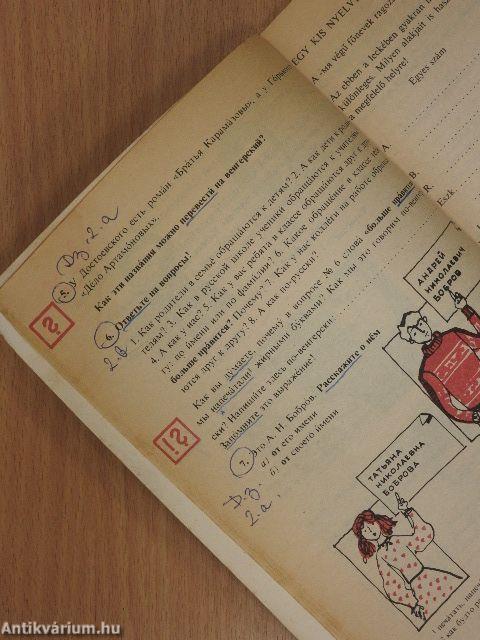 Дз. 2. а
5. У Достоевского есть роман «Братья Карамазовы», а у Горького
«Дело Артамоновых».
Как эти названия можно перевести на венгерский?
6. Ответьте на вопросы!
2 а
1. Как родители в семье обращаются к детям? 2. А как дети к
телям? 3. Как в русской школе ученики обращаются к
4. А как у нас? 5. Как у вас ребята в классе обращаются друг к
гу: по имени или по фамилии? 6. Какое обращение в классе
больше нравится? Почему? 7. Как у нас коллеги на работе
ются друг к другу? 8. А как по-русски?
Как вы думаете, почему в вопросе № 6 слова «больше нравится»
мы напечатали жирными буквами? Как мы это говорим по-венгер-
ски? Напишите здесь по-венгерски:
Запомните это выражение!
7. Это А. Н. Бобров. Расскажите о нём
а) от его имени
б) от своего имени
Д.з.
2. а.
EGY KIS NYELV
A -мя végű főnevek ragoz
Az ebben a leckében gyakran
különleges. Milyen alakjait is
a megfelelő helyre!
Egyes szám
B.
R.
Eszk.
АНДРЕЙ
НИКОЛАЕВИЧ
БОБРОВ
ТАТЬЯНА
НИКОЛАЕВНА
БОБРОВА
?
?!
Antikvárium.hu